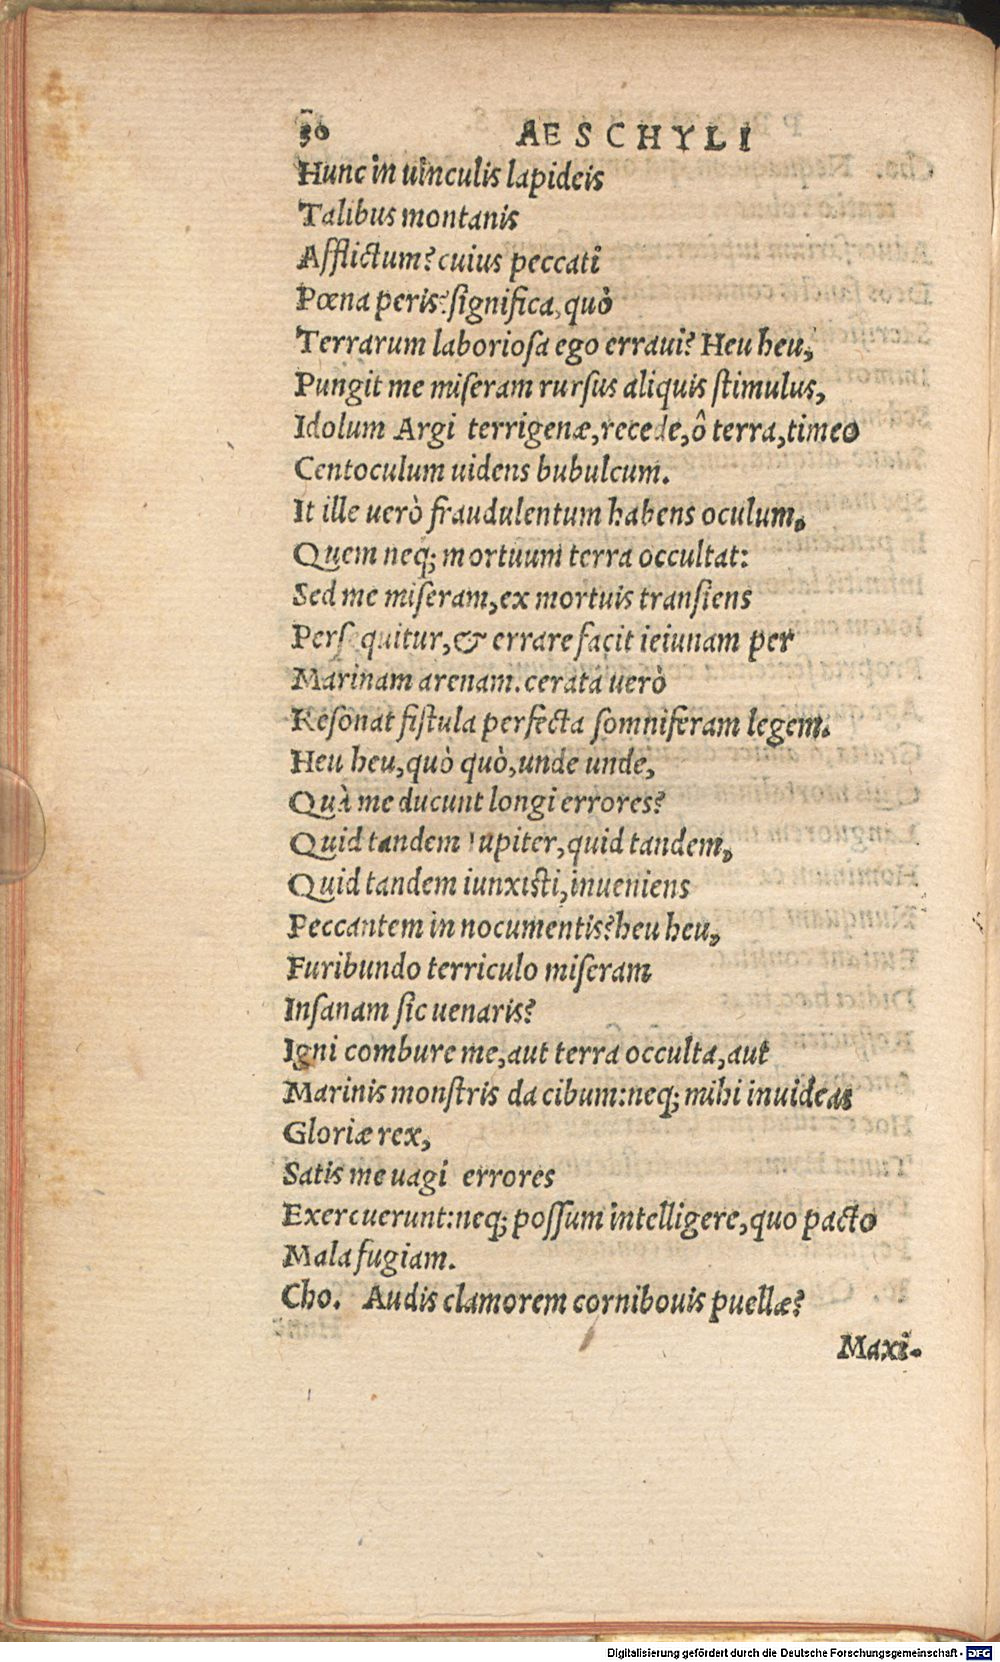 30 AESCHYLI
Hunc in uinculis lapideis
Talibus montanis
Afflictum? cuius peccati
Pœna peris? significa, quò
Terrarum laboriosa ego erraui? Heu heu,
Pungit me miseram rursus aliquis stimulus,
Idolum Argi terrigenæ, recede, ô terra, timeo
Centoculum uidens bubulcum.
It ille uerò fraudulentum habens oculum,
Quem neq; mortuum terra occultat:
Sed me miseram, ex mortuis transiens
Persequitur, & errare facit ieiunam per
Marinam arenam. cerata uerò
Resonat fistula perfecta somniferam legem.
Heu heu, quò quò, unde unde,
Quà me ducunt longi errores?
Quid tandem Iupiter, quid tandem,
Quid tandem iunxisti, inueniens
Peccantem in nocumentis? heu heu,
Furibundo terriculo miseram
Insanam sic uenaris?
Igni combure me, aut terra occulta, aut
Marinis monstris da cibum: neq; mihi inuideas
Gloriæ rex,
Satis me uagi errores
Exercuerunt: neq; possum intelligere, quo pacto
Mala fugiam.
Cho. Audis clamorem cornibouis puellæ?
Maxi-
Digitalisierung gefördert durch die Deutsche Forschungsgemeinschaft - DFG